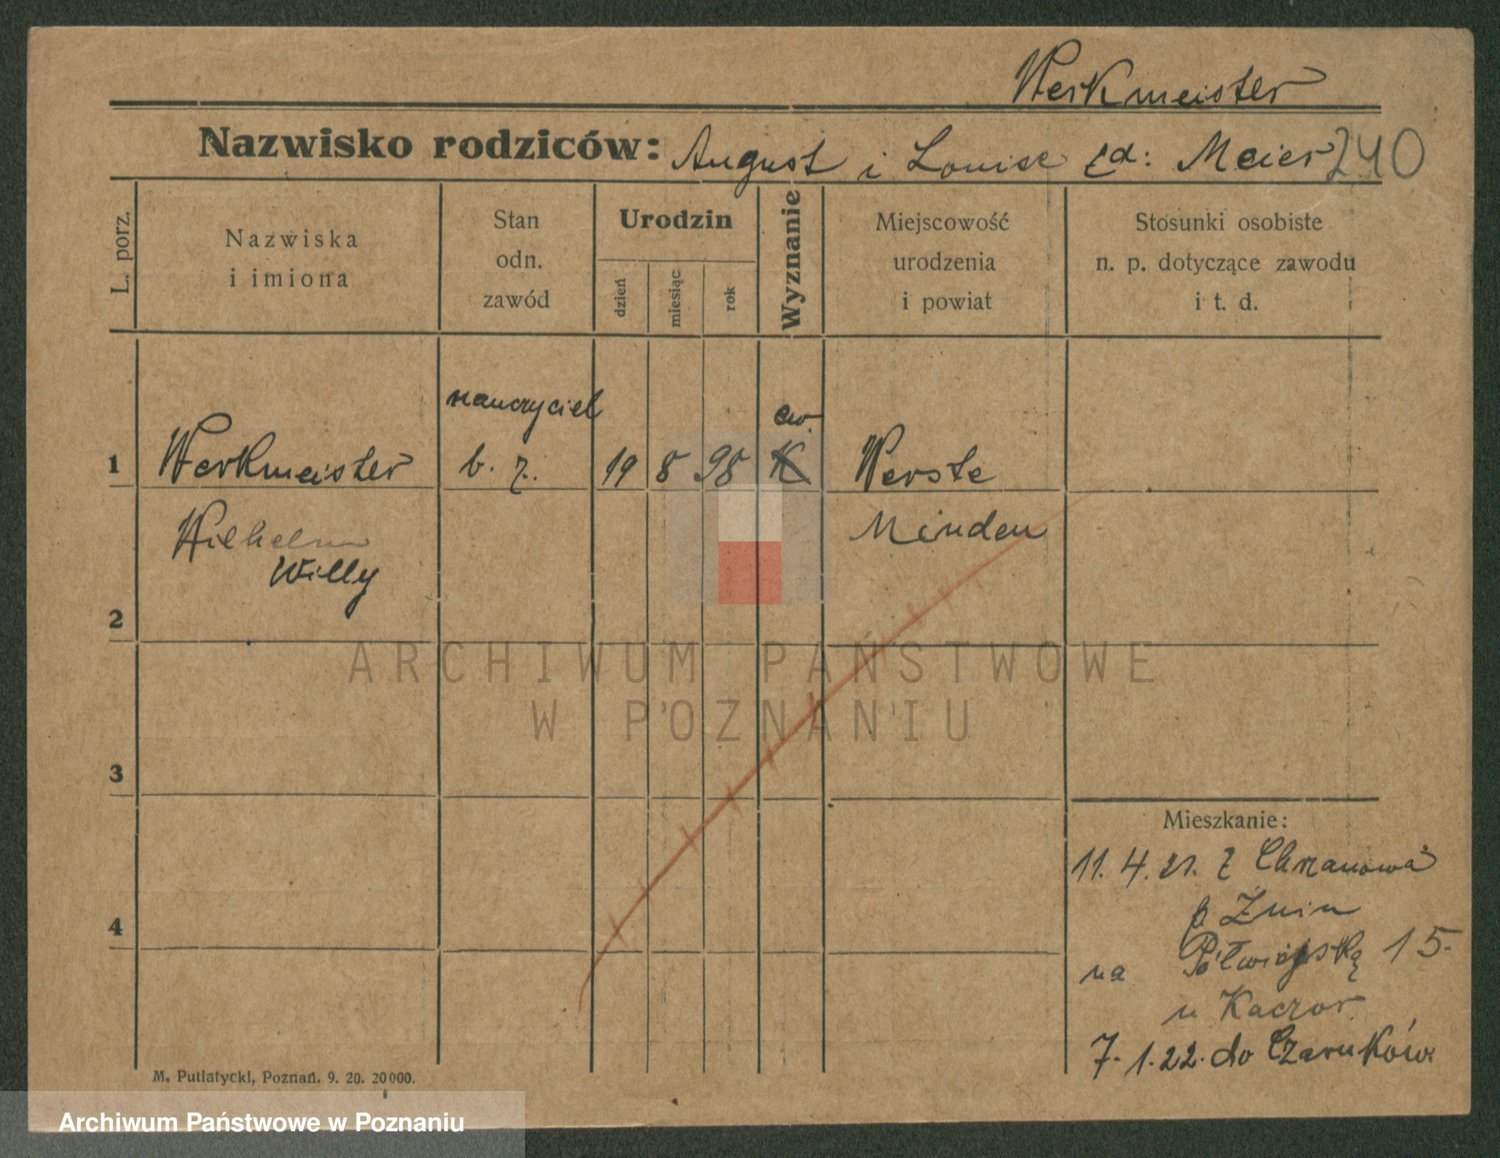 Werkmeister
Nazwisko rodziców: August i Louise zd: Meier 240
L. porz.
Nazwiska
i imiona
Stan
odn.
zawód
Urodzin
dzień
miesiąc
rok
Wyznanie
Miejscowość
urodzenia
i powiat
Stosunki osobiste
n. p. dotyczące zawodu
i t. d.
nauczyciel ew.
1 Werkmeister b. z. 19 8 98 K Werste
Wilhelm Minden
Willy
2
3
4
Mieszkanie:
11. 4. 21. z Chrzanowa
p Żnin
na Półwiejską 15.
u Kaczor
7. 1. 22. do Czarnków
M. Putiatycki, Poznań. 9. 20. 20000.
ARCHIWUM PAŃSTWOWE
W POZNANIU
Archiwum Państwowe w Poznaniu